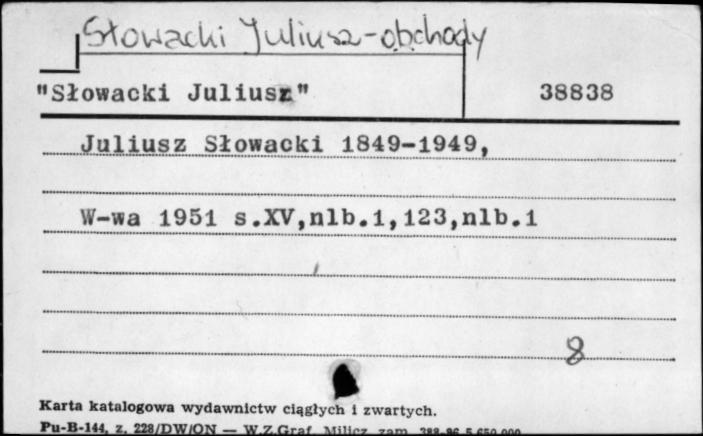 Słowacki Juliusz-obchody
"Słowacki Juliusz" 38838
Juliusz Słowacki 1849-1949,
W-wa 1951 s.XV,nlb.1,123,nlb.1
8
Karta katalogowa wydawnictw ciągłych i zwartych.
Pu-B-144, z. 228/DW/ON — W.Z.Graf. Milicz zam.